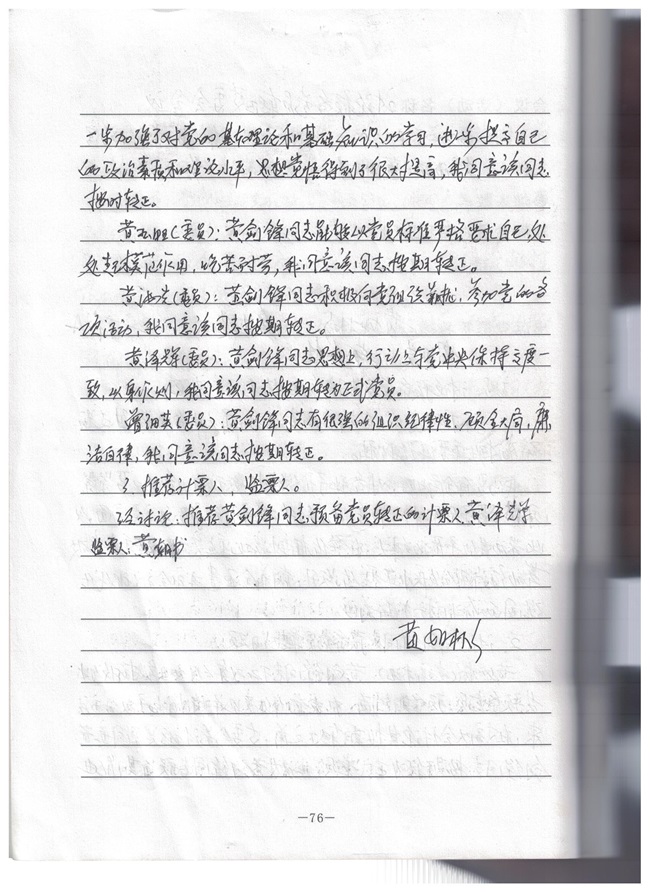 一步加强了对党的基本理论和基础知识的学习，进一步提高自己
的政治素质和理论水平，思想觉悟得到了很大提高，我同意该同志
按时转正。
（委员）：黄剑锋同志能够以党员标准严格要求自己，处
处起模范作用，吃苦耐劳，我同意该同志按期转正。
（委员）：黄剑锋同志积极向党组织靠拢，参加党的各
项活动，我同意该同志按期转正。
黄泽辉（委员）：黄剑锋同志思想上，行动上与党中央保持高度一
致，以身作则，我同意该同志按期转为正式党员。
曾细英（委员）：黄剑锋同志有很强的组织纪律性，顾全大局，廉
洁自律，我同意该同志按期转正。
3、推荐计票人、监票人。
经讨论：推荐黄剑锋同志预备党员转正的计票人 黄泽
监票人：黄
黄
—76—